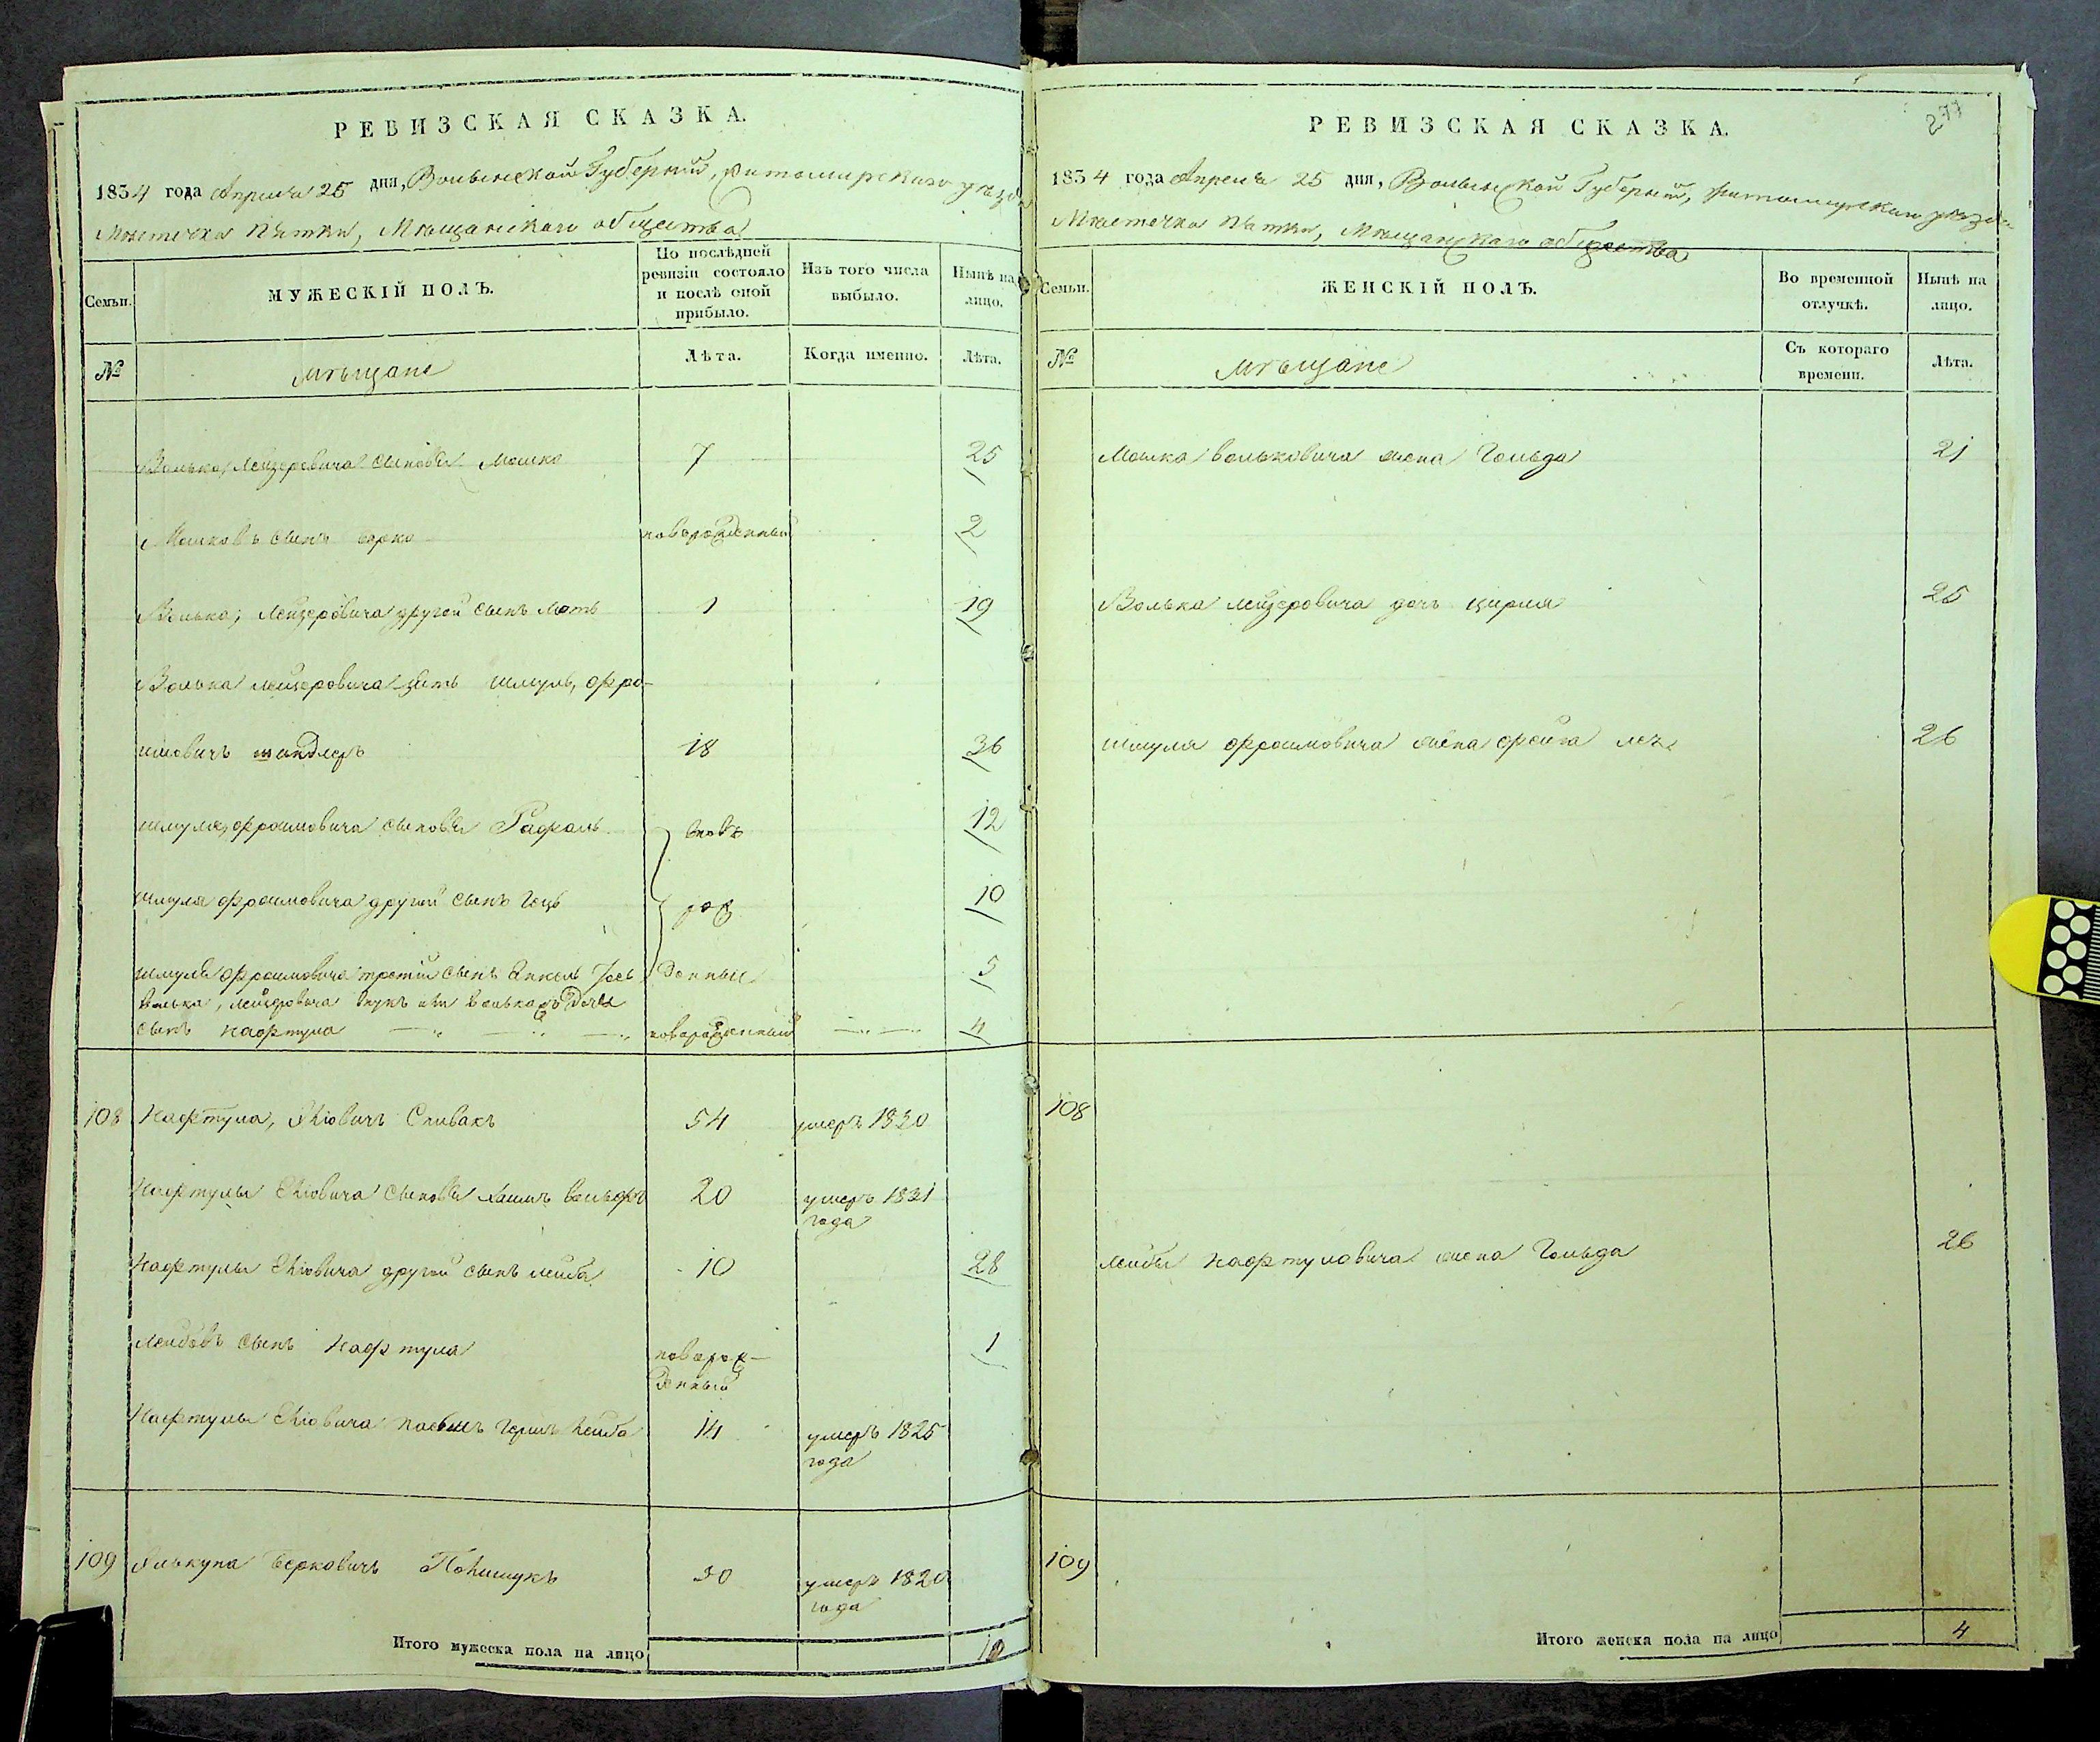 РЕВИЗСКАЯ СКАЗКА.
1834 года Апреля 25 дня, Волынской Губернии, Житомирского уезда
Мѣстечка Пятки, Мѣщанского общества
Семьи.
МУЖЕСКІЙ ПОЛЪ.
По послѣдней ревизіи состояло и послѣ оной прибыло.
Изъ того числа выбыло.
Нынѣ на лицо.
№
Мѣщане
Лѣта.
Когда именно.
Лѣта.
Волька Лейзеровича сыновья Мошко 7 25
Мошковъ сынъ Берко новорожденный 2
Волька, Лейзеровича другой сынъ Мать 1 19
Волька Лейзеровича зять Шмуль, Фро-
имовичъ 18 36
Шмуля, Фроимовича сыновья Рафаль ново 12
Шмуля Фроимовича другой сынъ рож 10
Шмуля Фроимовича третій сынъ Янкель Іось денные 5
Волька, Лейзеровича внукъ дочи
сынъ Нафтула новорожденный 4
108 Нафтула, Спивакъ 54 умеръ 1820
Нафтулы сыновья Вольфъ 20 умеръ 1831
года
Нафтулы другой сынъ Лейба 10 28
Лейбовъ сынъ Нафтула новорож- 1
денный
Нафтулы Гершъ Лейба 14 умеръ 1825
года
109 Берковичъ 50 умеръ 1820
года
Итого мужеска пола на лицо 10
277
РЕВИЗСКАЯ СКАЗКА.
1834 года Апреля 25 дня, Волынской Губерніи, Житомирского уезда
Мѣстечка Пятки, Мѣщанского общества
Семьи.
ЖЕНСКІЙ ПОЛЪ.
Во временной отлучкѣ.
Нынѣ на лицо.
№
Мѣщане
Съ котораго времени.
Лѣта.
Мошка Вольковича жена Гольда 21
Волька Лейзеровича дочь Цирля 25
Шмуля Фроимовича жена Фрейга 26
108
Лейбы Нафтуловича жена Гольда 26
109
Итого женска пола на лицо 4